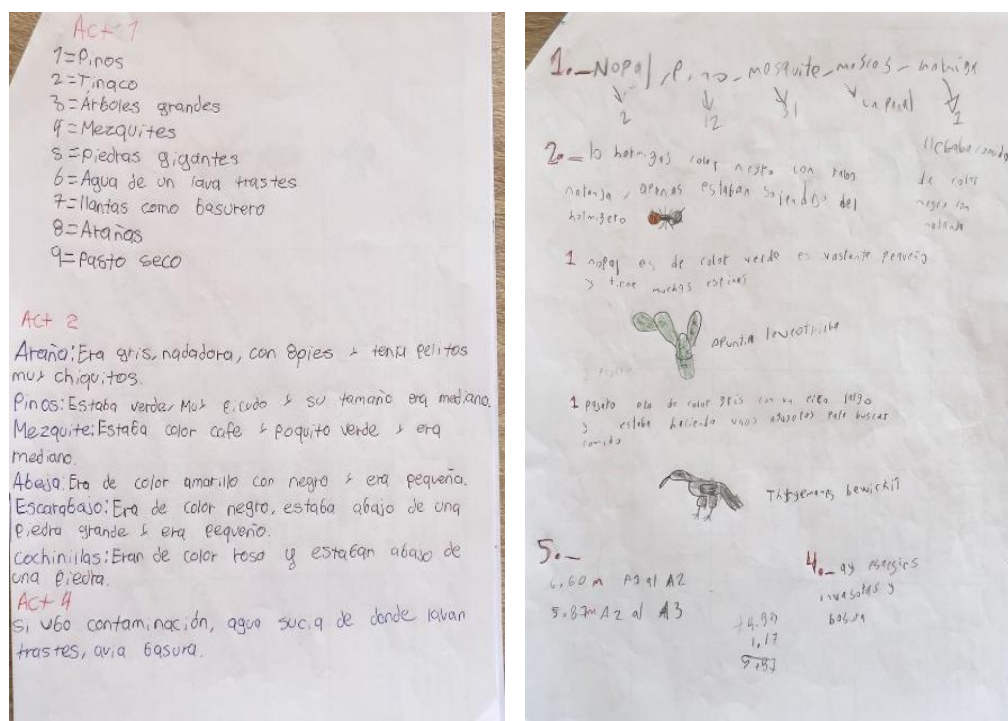 Act 1
1=Pinos
2=Tinaco
3=Arboles grandes
4=Mezquites
5=piedras gigantes
6=Agua de un lava trastes
7=llantas como basurero
8=Arañas
9=Pasto seco
Act 2
Araña: Era gris, nadadora, con 8pies y tenia pelitos
muy chiquitos.
Pinos: Estaba verde, Muy picudo y su tamaño era mediano.
Mezquite: Estaba color cafe y poquito verde y era
mediano.
Abeja: Era de color amarillo con negro y era pequeña.
Escarabajo: Era de color negro, estaba abajo de una
piedra grande y era pequeño.
Cochinillas: Eran de color rosa y estaban abajo de
una piedra.
Act 4
si ubo contaminación, agua sucia de donde lavan
trastes, avia basura.
1._ Nopal, Pino_mosquite_moscas_
2 12 31 un panal 1
2._ color negro con
apenas estaban del
1 nopal es de color verde es vastante pequeño
y tiene muchas espinas
opuntia
1 pajaro era de color gris con un pico largo
y estaba haciendo unos para buscar
comida
5._
6,60 m A1 al A2
5.87m A2 al A3
4._ ay
y
basura
de color
negro con
1,17